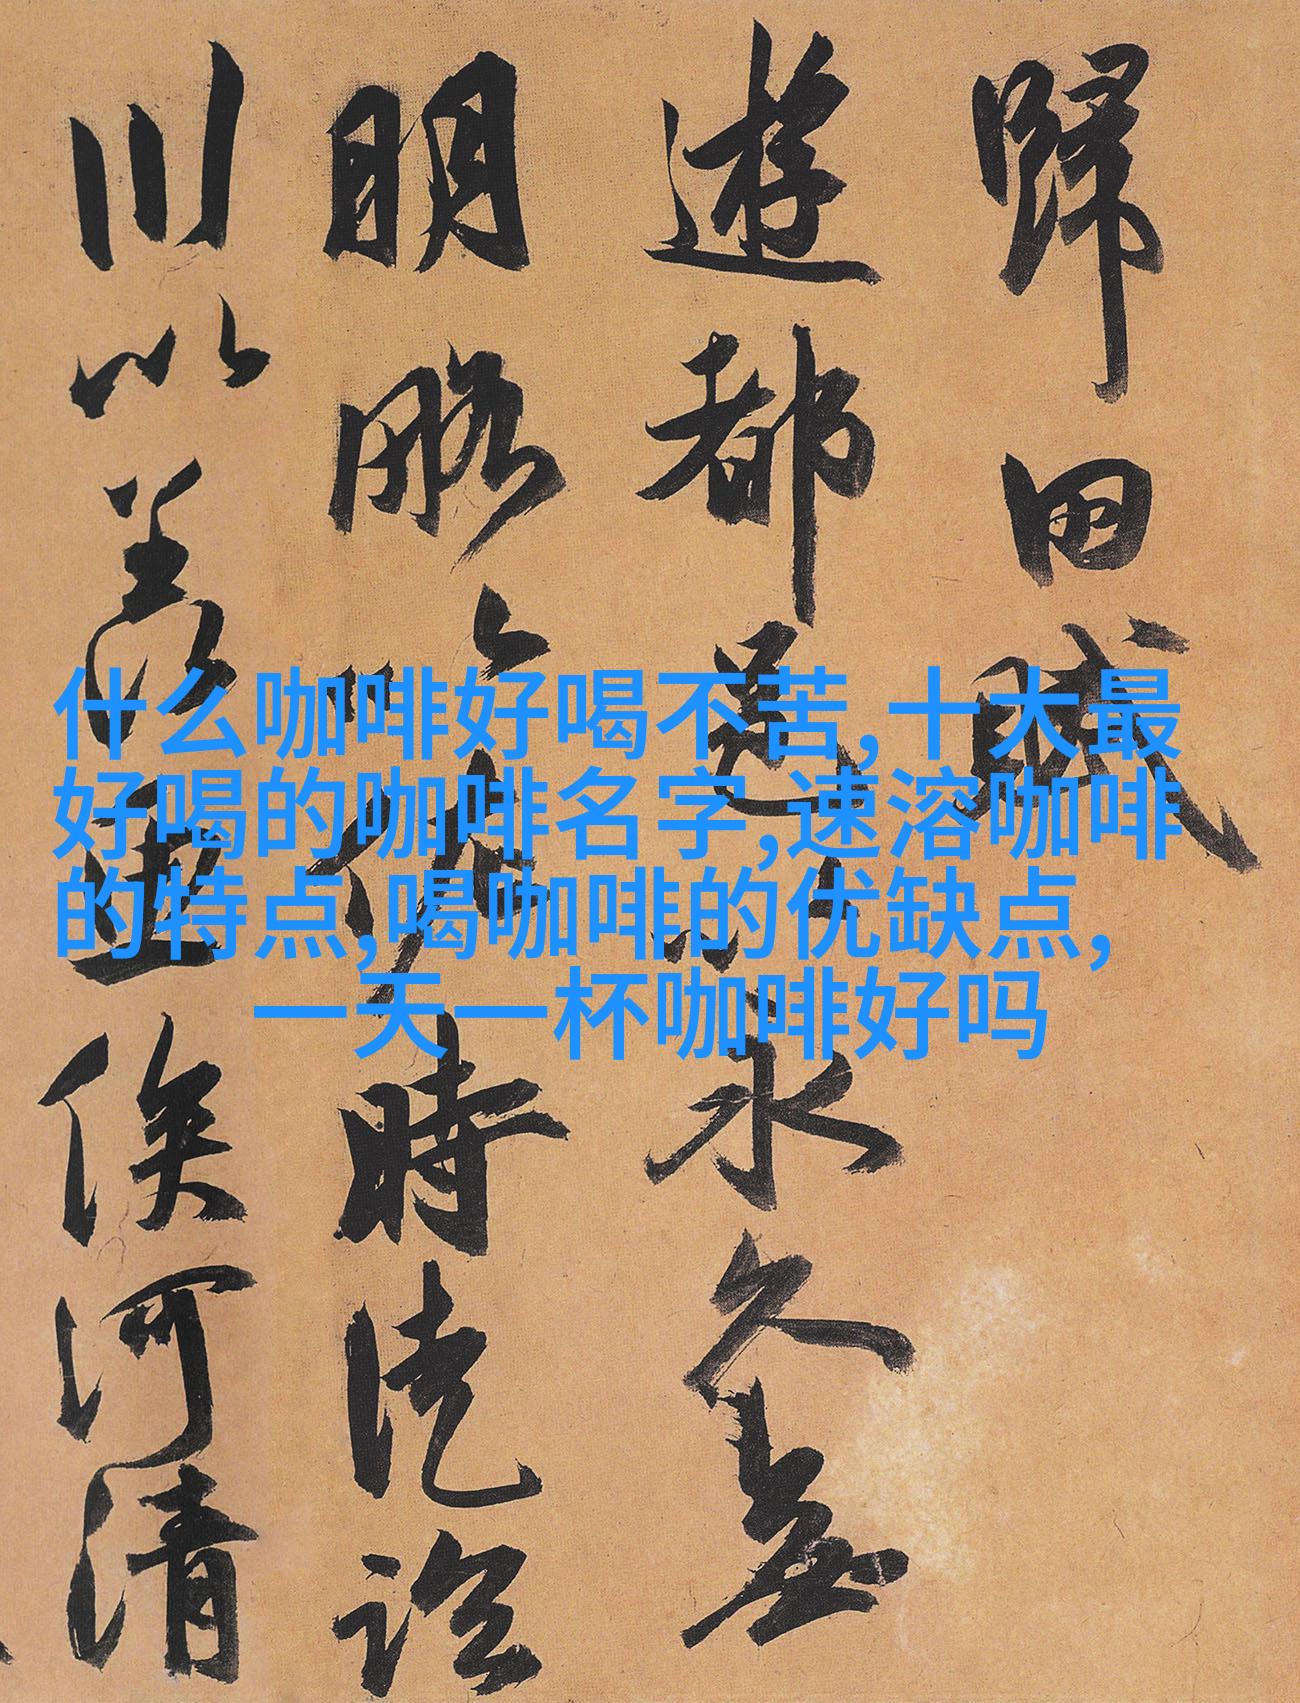 歸田賦
遊都邑以永久無
明略以佐時徒臨
川以羨魚俟河清
什么咖啡好喝不苦,十大最
好喝的咖啡名字,速溶咖啡
的特点,喝咖啡的优缺点,
一天一杯咖啡好吗